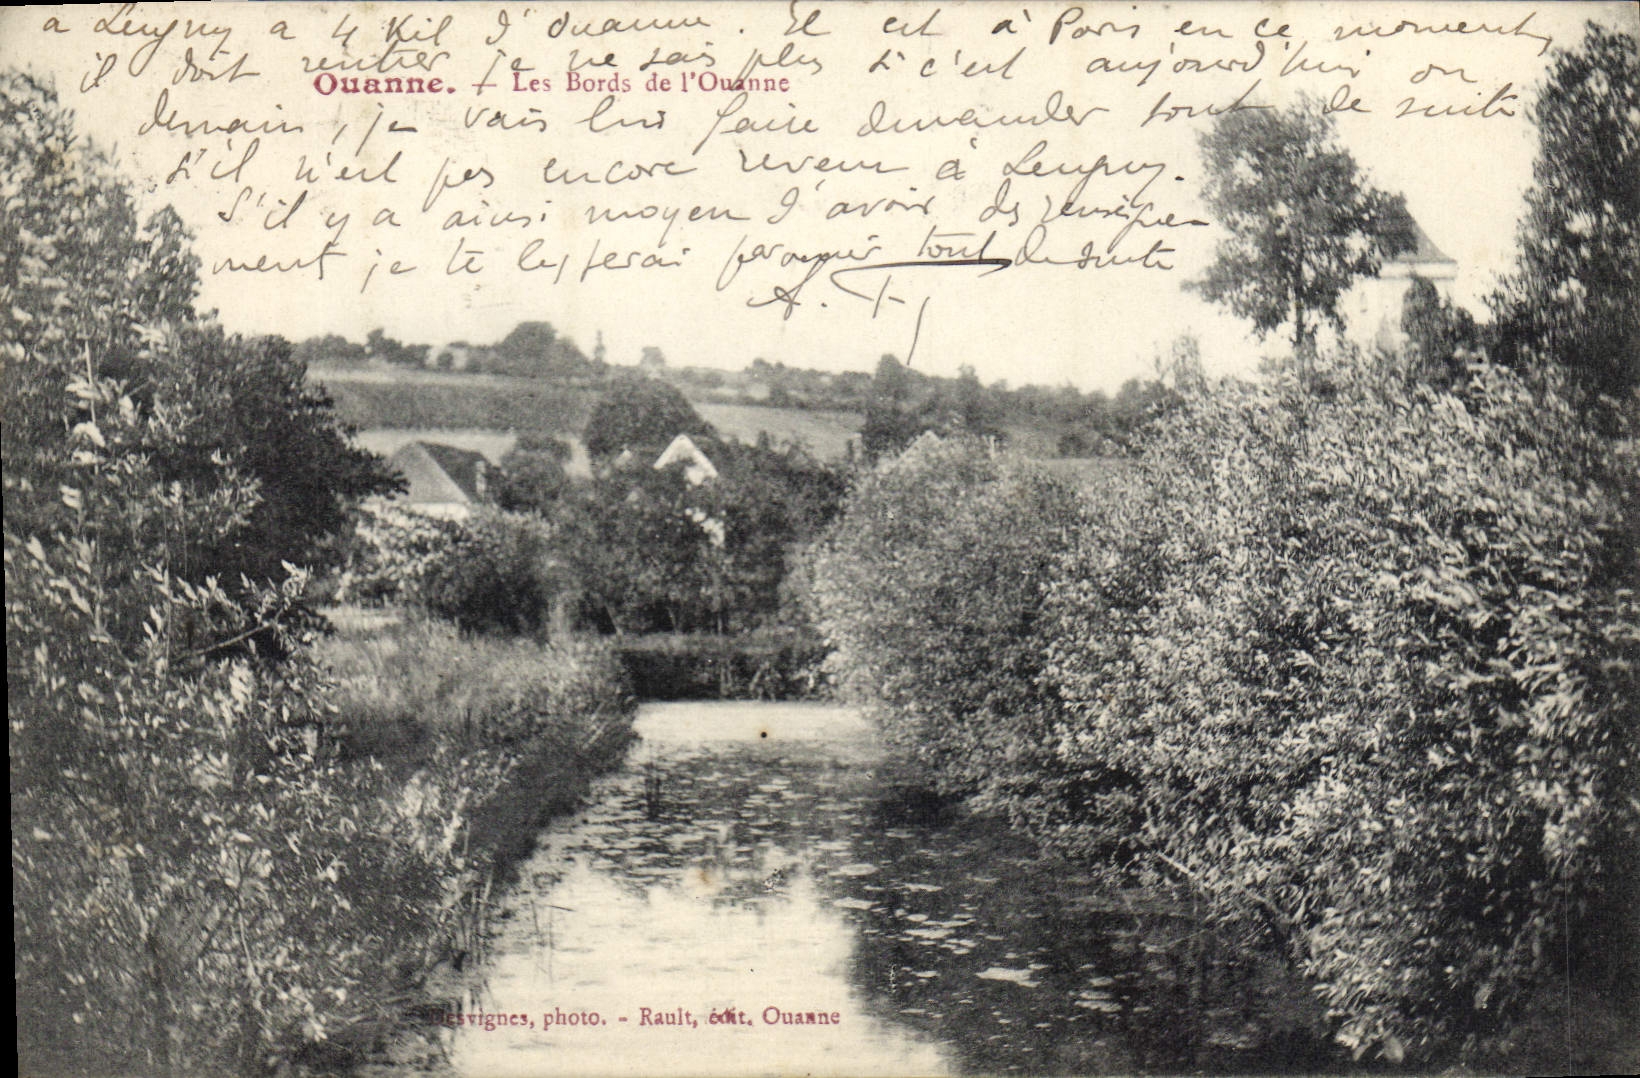 à Leugny à 4 Kil d'Ouanne. Il est à Paris en ce moment,
il doit rentrer je ne sais plus si c'est aujourd'hui ou
Ouanne. — Les Bords de l'Ouanne
demain, je vais lui faire demander tout de suite
s'il n'est pas encore revenu à Leugny.
S'il y a ainsi moyen d'avoir des renseigne-
ment je te les ferai parvenir tout de suite
Desvignes, photo. - Rault, édit. Ouanne